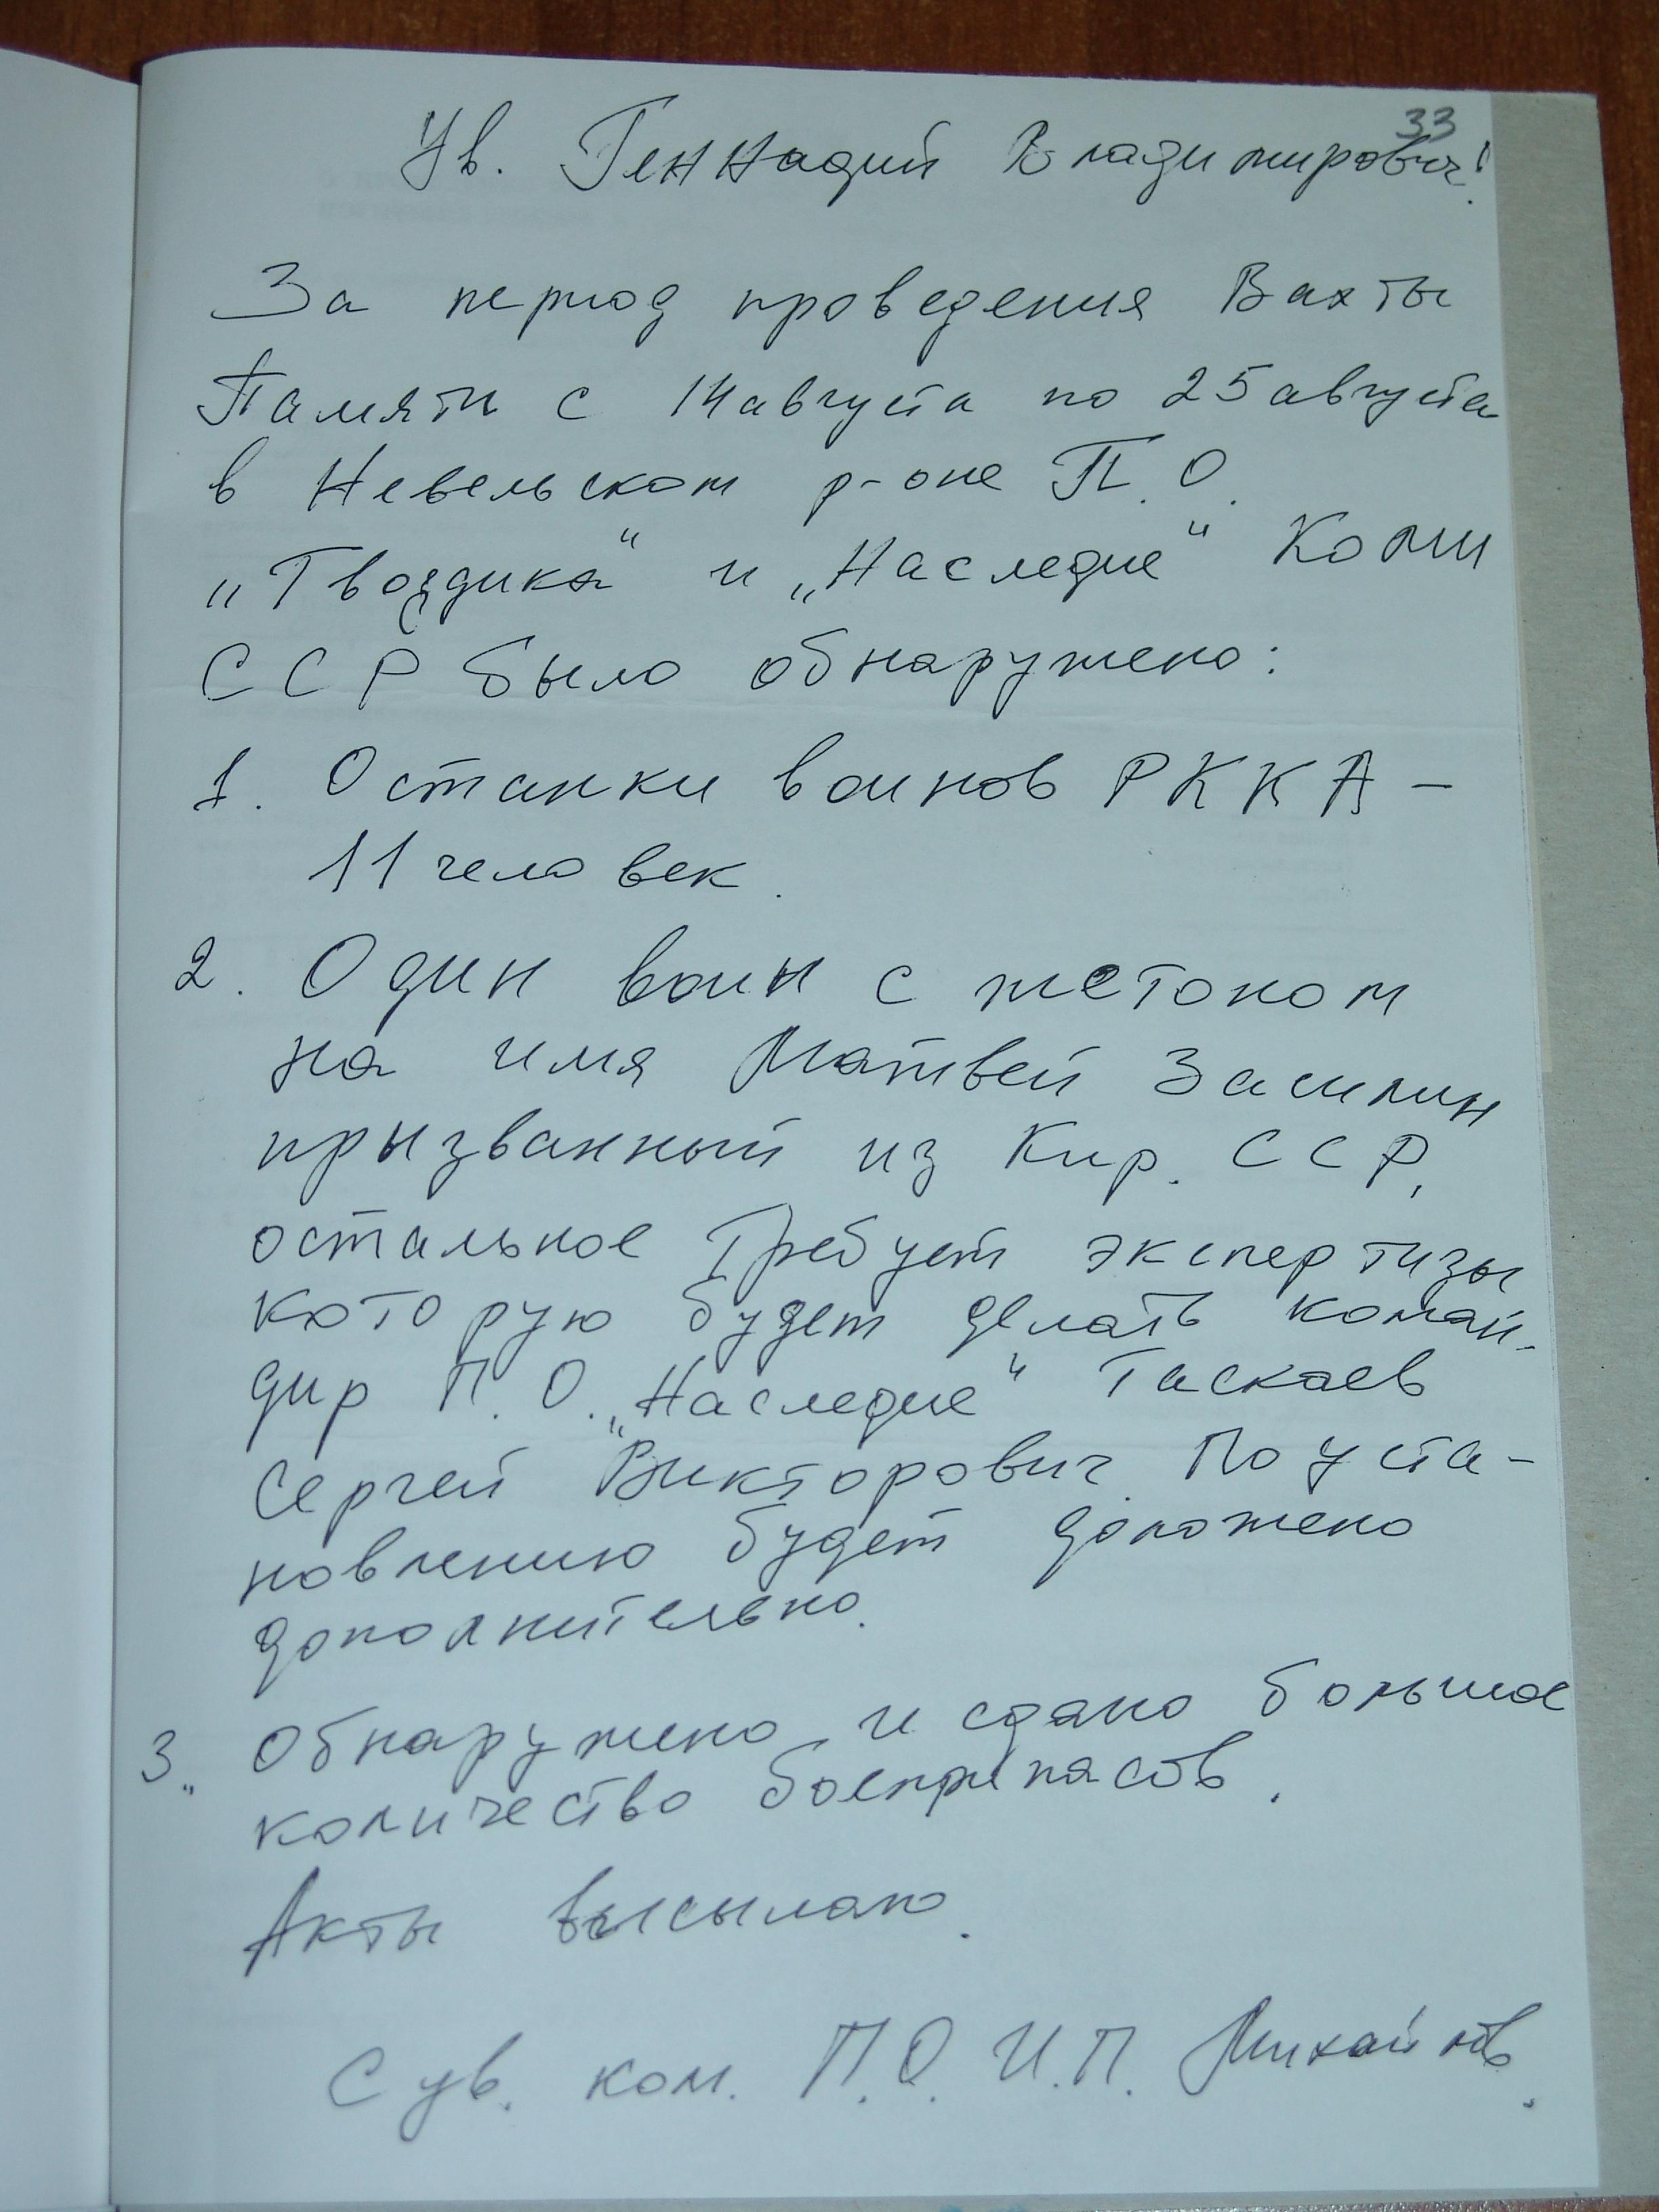 33
Ув. Геннадий Владимирович!
За период проведения Вахты
Памяти с 14 августа по 25 августа
в Невельском р-оне П.О.
„Гвоздика“ и „Наследие“ Коми
ССР было обнаружено:
1. Останки воинов РККА –
11 человек.
2. Один воин с жетоном
на имя Матвей
призванный из Кир. ССР,
остальное требует экспертизы
которую будет делать коман-
дир П.О. „Наследие“ Таскаев
Сергей Викторович. По уста-
новлению будет доложено
дополнительно.
3. Обнаружено и сдано большое
количество боеприпасов.
Акты высылаю.
С ув. ком. П.О. И.П. Михайлов.